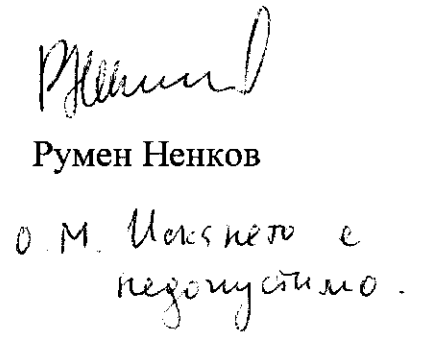 Румен Ненков
О.М. Искането е
недопустимо.